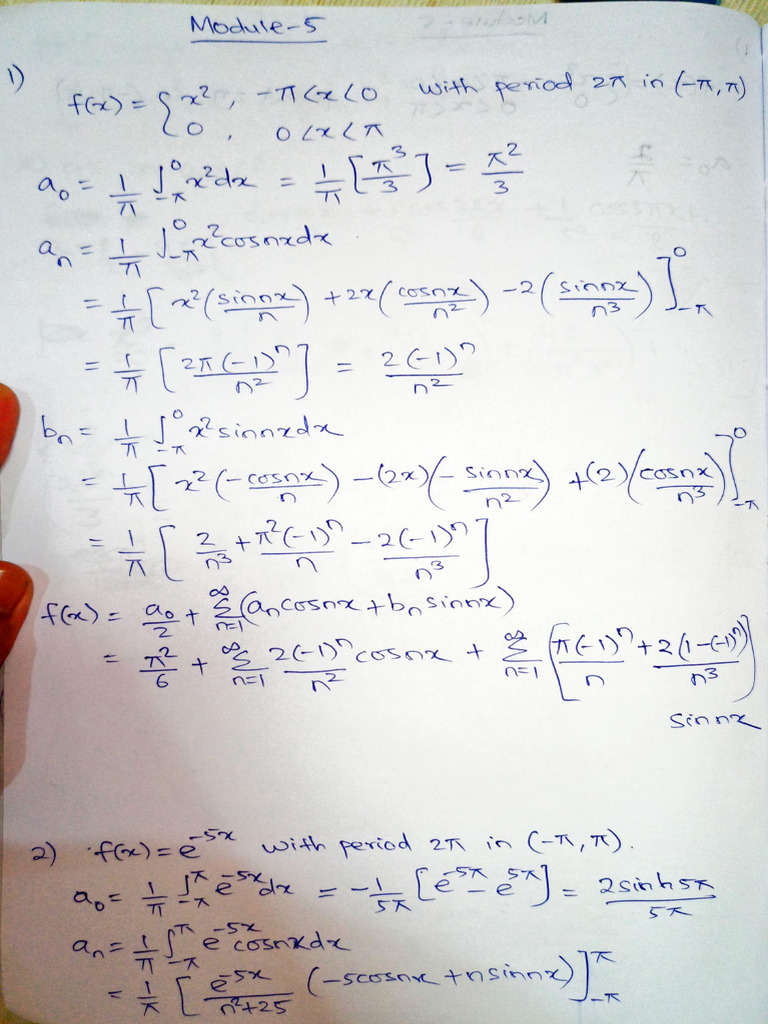 Module-5
1)
f(x) = { x², -π<x<0 with period 2π in (-π, π)
0, 0<x<π
a₀ = 1/π ∫_{-π}^{0} x²dx = 1/π [π³/3] = π²/3
aₙ = 1/π ∫_{-π}^{0} x²cosnxdx
= 1/π [x²(sinnx/n) + 2x(cosnx/n²) - 2(sinnx/n³)]_{-π}^{0}
= 1/π [2π(-1)ⁿ/n²] = 2(-1)ⁿ/n²
bₙ = 1/π ∫_{-π}^{0} x²sinnxdx
= 1/π [x²(-cosnx/n) - (2x)(-sinnx/n²) + (2)(cosnx/n³)]_{-π}^{0}
= 1/π [2/n³ + π²(-1)ⁿ/n - 2(-1)ⁿ/n³]
f(x) = a₀/2 + Σ_{n=1}^{∞} (aₙcosnx + bₙsinnx)
= π²/6 + Σ_{n=1}^{∞} 2(-1)ⁿ/n² cosnx + Σ_{n=1}^{∞} [π(-1)ⁿ/n + 2(1-(-1)ⁿ)/n³]
sinnx
2) f(x) = e^{-5x} with period 2π in (-π, π).
a₀ = 1/π ∫_{-π}^{π} e^{-5x}dx = -1/5π [e^{-5π} - e^{5π}] = 2sinh5π/5π
aₙ = 1/π ∫_{-π}^{π} e^{-5x}cosnxdx
= 1/π [e^{-5x}/(n²+25) (-5cosnx + nsinnx)]_{-π}^{π}